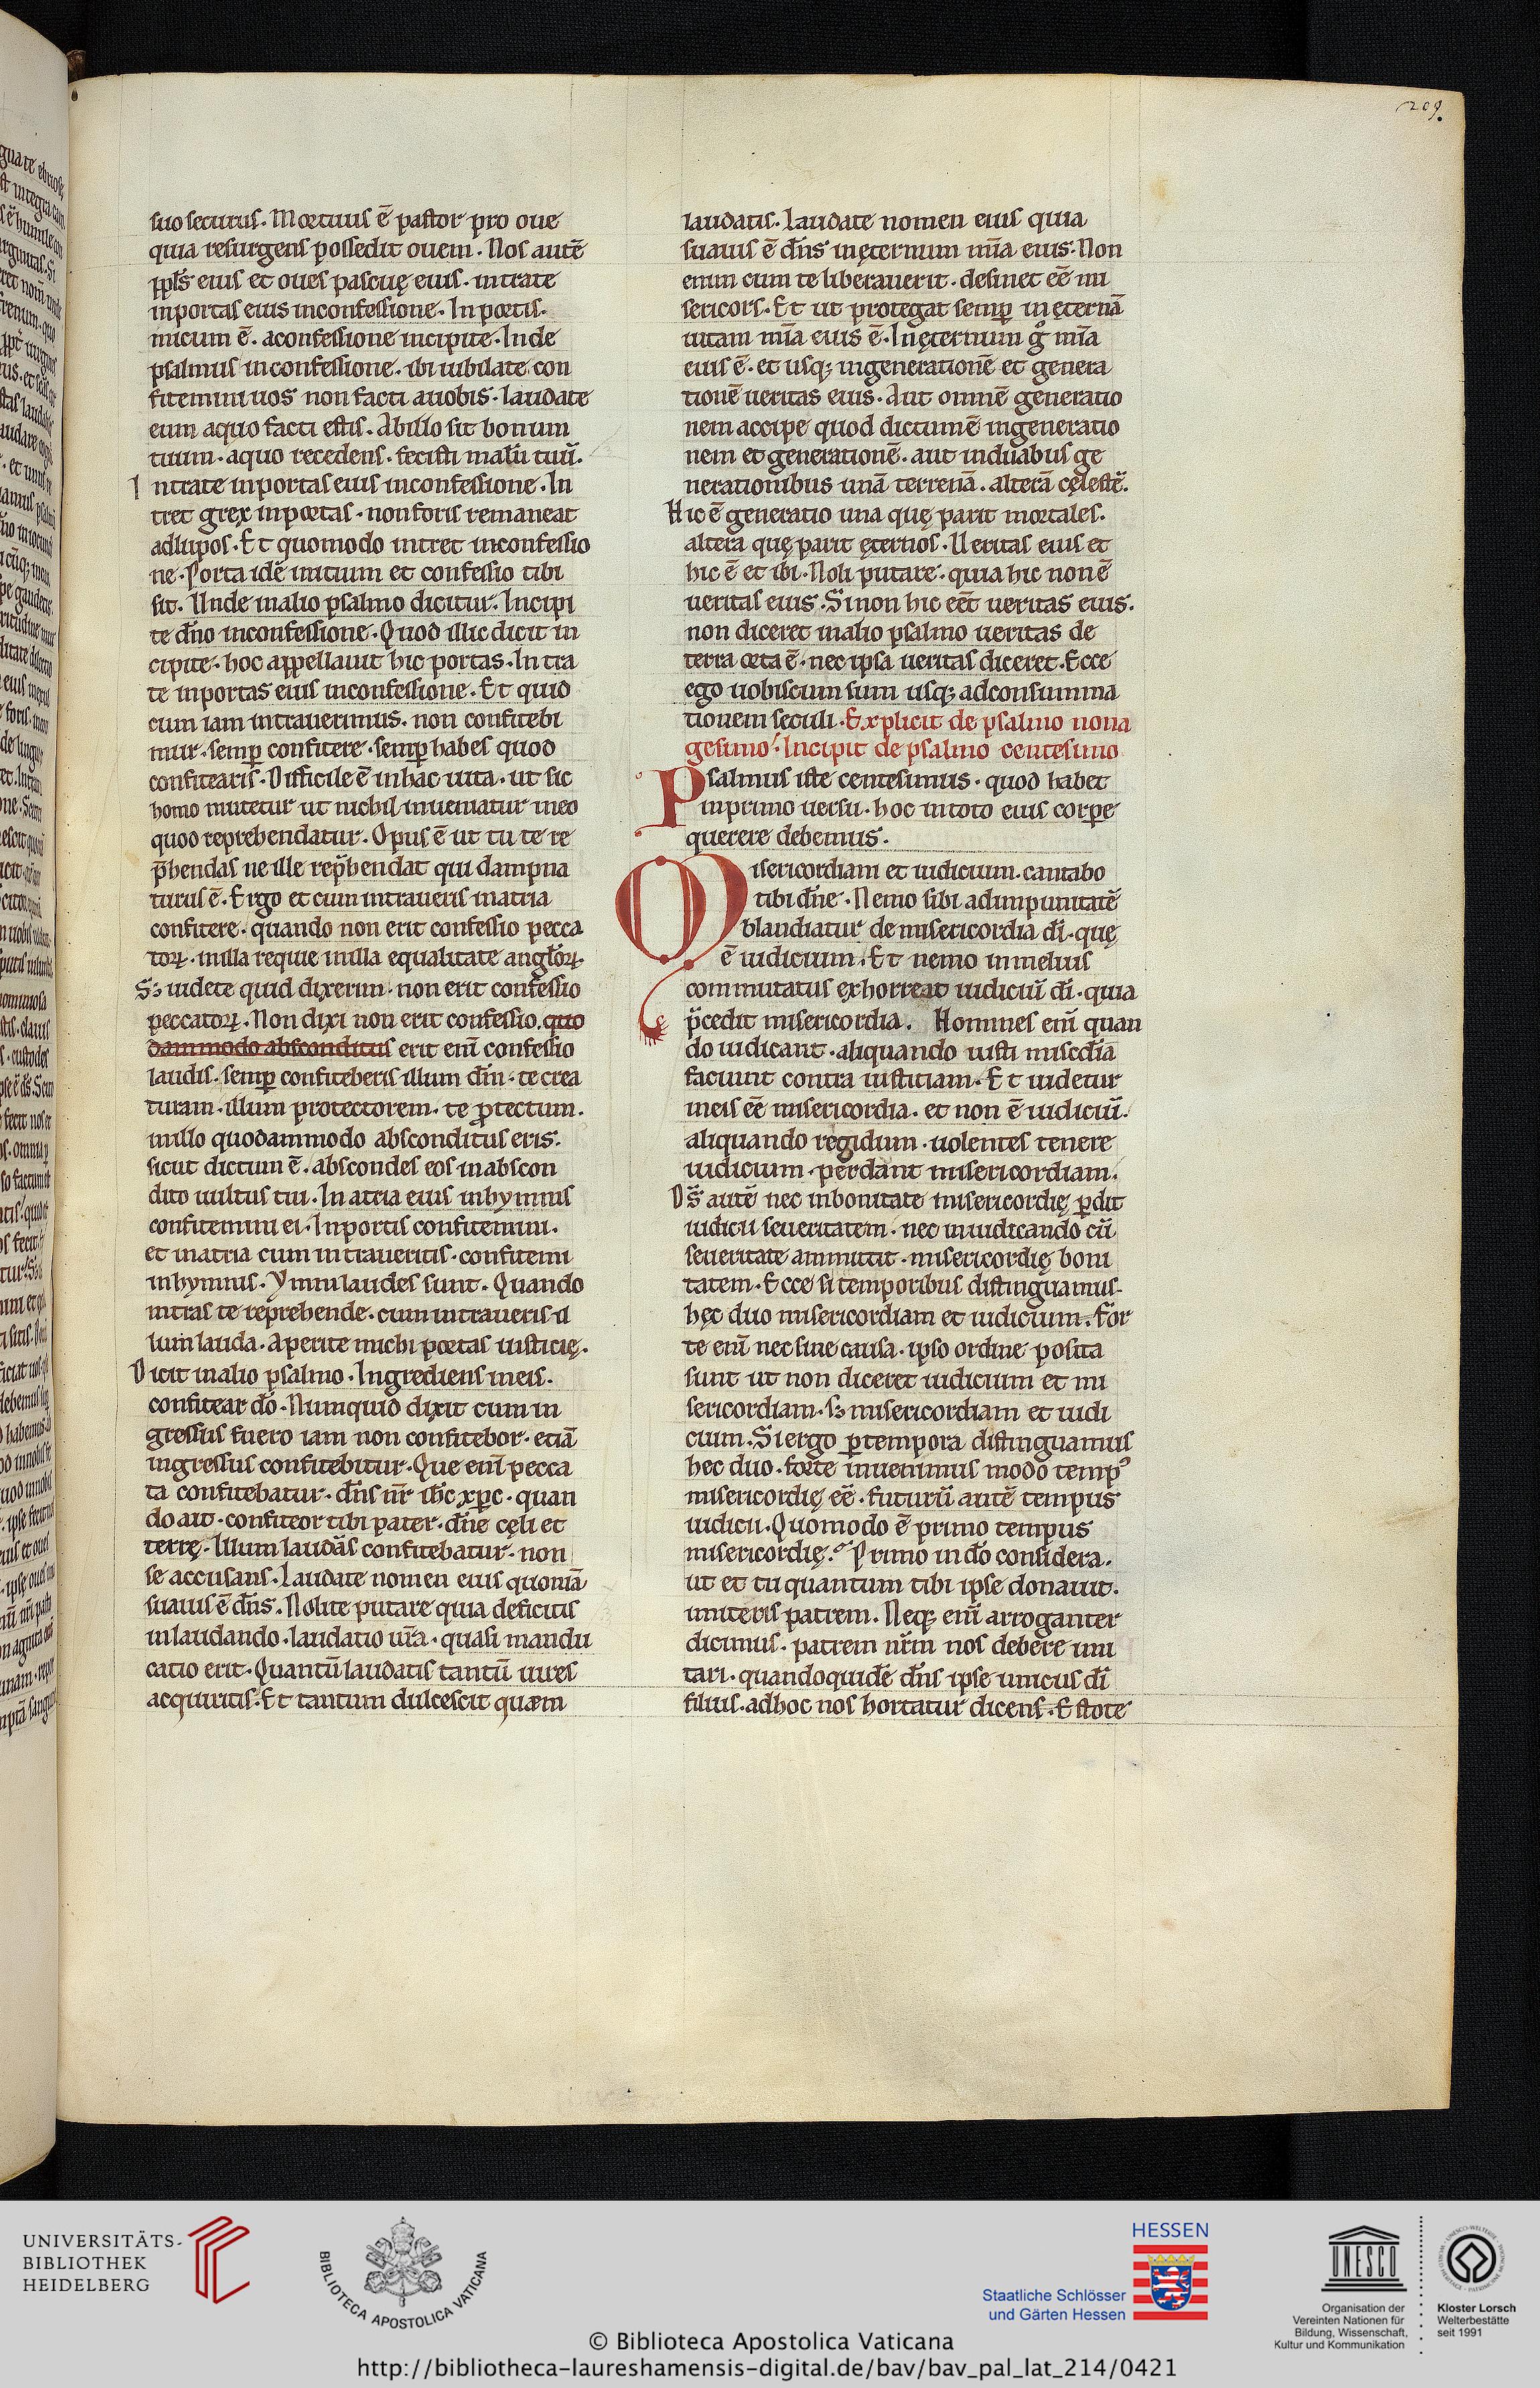 209.
suo securus. Mortuus ē pastor pro oue
quia resurgens possedit ouem. Nos autē
ppl̄s eius et oues pascuę eius. intrate
inportas eius inconfessione. In portis.
inicium ē. aconfessione incipite. Inde
psalmus inconfessione. ibi iubilate con
fitemini uos non facti auobis. laudate
eum aquo facti estis. Abillo sit bonum
tuum. aquo recedens. fecisti malū tuū.
Intrate inportas eius inconfessione. In
tret grex inportas. nonforis remaneat
adlupos. Et quomodo intret inconfessio
ne. Porta idē initium et confessio tibi
sit. Unde inalio psalmo dicitur. Incipi
te dn̄o inconfessione. Quod illic dicit in
cipite. hoc appellauit hic portas. Intra
te inportas eius inconfessione. Et quid
cum iam intrauerimus. non confitebi
mur. semꝑ confitere. semꝑ habes quod
confitearis. Difficile ē inhac uita. ut sic
homo mutetur ut nichil inueniatur ineo
quod reprehendatur. Opus ē ut tu te re
p̄hendas ne ille rep̄hendat qui dampna
turus ē. Ergo et cum intraueris inatria
confitere. quando non erit confessio pecca
torꝝ. inilla requie inilla equalitate angl̄orꝝ.
Sꝫ uidete quid dixerim. non erit confessio
peccatorꝝ. Non dixi non erit confessio. quo
dammodo absconditus erit eni̅ confessio
laudis. semꝑ confiteberis illum dm̄. te crea
turam. illum protectorem. te ꝓtectum.
inillo quodammodo absconditus eris.
sicut dictum ē. abscondes eos inabscon
dito uultus tui. In atria eius inhymnis
confitemini ei. Inportis confitemini.
et inatria cum intraueritis. confitemi
inhymnis. Ymni laudes sunt. Quando
intras te reprehende. cum intraueris il
lum lauda. Aperite michi portas iusticię.
Dicit inalio psalmo. Ingrediens ineis.
confitear dō. Numquid dixit cum in
gressus fuero iam non confitebor. etiā
ingressus confitebitur. Que eni̅ pecca
ta confitebatur. dn̄s nr̄ ih̄c xp̄c. quan
do ait. confiteor tibi pater. dn̄e cęli et
terrę. Illum laudās confitebatur. non
se accusans. Laudate nomen eius quoniā
suauis ē dn̄s. Nolite putare quia deficitis
inlaudando. laudatio ur̄a. quasi mandu
catio erit. Quantū laudatis tantū uires
acquiritis. Et tantum dulcescit quem
laudatis. Laudate nomen eius quia
suauis ē dn̄s inęternum mīa eius. Non
enim cum te liberauerit. desinet eē mi
sericors. Et ut protegat semꝑ inęternā
uitam mīa eius ē. Inęternum gͦ mīa
eius ē. et usqꝫ ingenerationē et genera
tionē ueritas eius. Aut omnē generatio
nem accipe quod dictumē ingeneratio
nem et generationē. aut induabus ge
nerationibus unā terrenā. alterā cęlestē.
Hic ē generatio una quę parit mortales.
altera quę parit ęternos. Ueritas eius et
hic ē et ibi. Noli putare. quia hic non ē
ueritas eius. Si non hic eēt ueritas eius.
non diceret inalio psalmo ueritas de
terra orta ē. nec ipsa ueritas diceret. Ecce
ego uobiscum sum usqꝫ adconsumma
tionem seculi. Explicit de psalmo nona
gesimo. Incipit de psalmo centesimo
Psalmus iste centesimus. quod habet
inprimo uersu. hoc intoto eius corꝑe
querere debemus.
Misericordiam et iudicium. cantabo
tibi dn̄e. Nemo sibi adinpunitatē
blandiatur de misericordia dī. quę
ē iudicium. Et nemo inmelius
commutatus exhorreat iudiciū dī. quia
p̄cedit misericordia. Homines eni̅ quan
do iudicant. aliquando uicti miscd̄iā
faciunt contra iustitiam. Et uidetur
ineis eē misericordia. et non ē iudiciū.
aliquando regidium. uolentes tenere
iudicium. perdant misericordiam.
Ds̄ autē nec inbonitate misericordię ꝑdit
iudicii seueritatem. nec iniudicando cū
seueritate ammittit. misericordię boni
tatem. Ecce si temporibus distinguamus.
hęc duo misericordiam et iudicium. for
te eni̅ necsine causa. ipso ordine posita
sunt ut non diceret iudicium et mi
sericordiam. sꝫ misericordiam et iudi
cium. Si ergo ꝑtempora distinguamus
hec duo. forte inuenimus modo tempꝰ
misericordię eē. futurū autē tempus
iudicii. Quomodo ē primo tempus
misericordię. Primo indō considera.
ut et tu quantum tibi ipse donauit.
imiteris patrem. Neqꝫ eni̅ arroganter
dicimus. patrem nr̄m nos debere imi
tari. quandoquidē dn̄s ipse unicus dī
filius. adhoc nos hortatur dicens. Estote
UNIVERSITÄTS-
BIBLIOTHEK
HEIDELBERG
BIBLIOTECA APOSTOLICA VATICANA
HESSEN
Staatliche Schlösser
und Gärten Hessen
UNESCO
Organisation der
Vereinten Nationen für
Bildung, Wissenschaft,
Kultur und Kommunikation
Kloster Lorsch
Welterbestätte
seit 1991
© Biblioteca Apostolica Vaticana
http://bibliotheca-laureshamensis-digital.de/bav/bav_pal_lat_214/0421